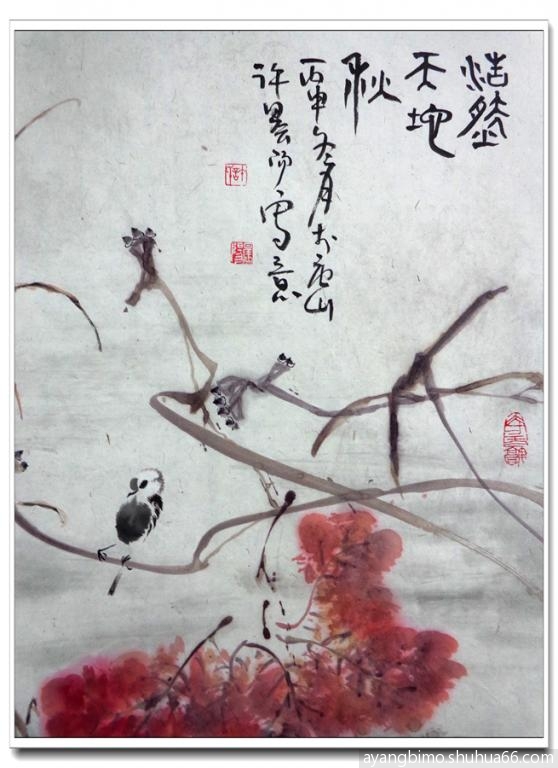 浩然
天地
秋
丙申冬月於唐山
许 写意
ayangbimo.shuhua66.com